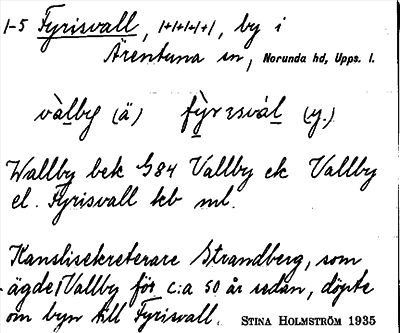 1-5 Fyrisvall, 1+1+1+1+1, by i
Ärentuna sn, Norunda hd, Upps. l.
vàlby (ä) fỳrısvál (y.)
Wallby bek G84 Vallby ek Vallby
el. Fyrisvall kb ml.
Kanslisekreterare Strandberg, som
ägde Vallby för c:a 50 år sedan, döpte
om byn till Fyrisvall.
STINA HOLMSTRÖM 1935